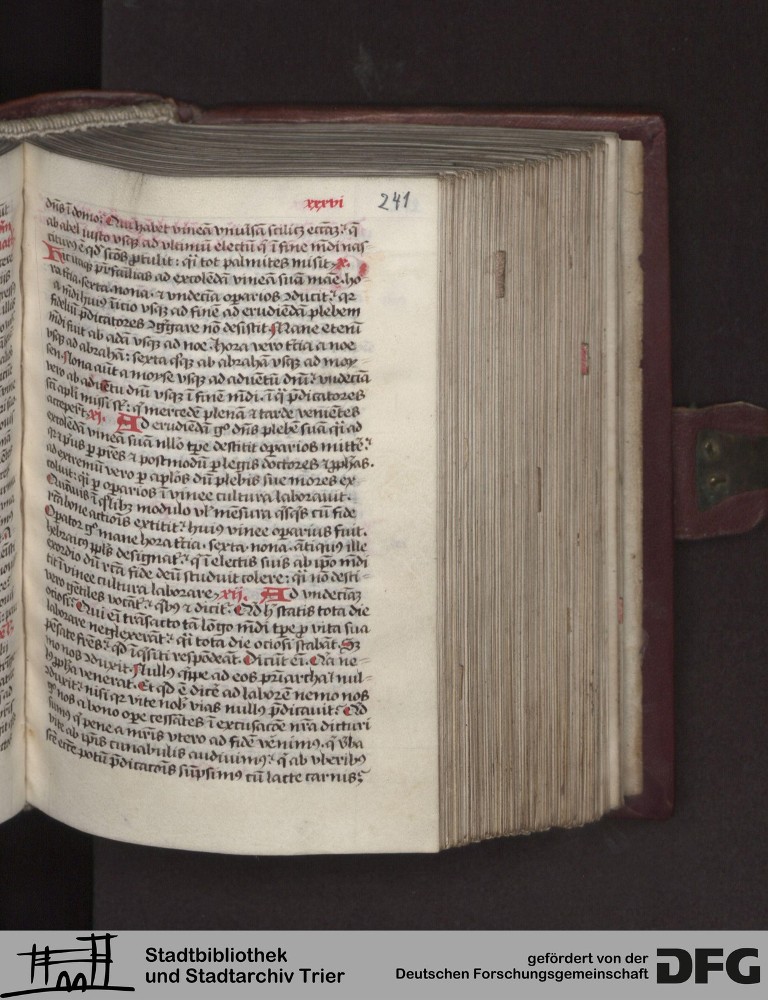 xxxvi 241
dn̄s ī domo. Qui habet vineā vniuersā scilicꝫ ecc̄aꝫ: q̄
ab abel iusto vsqꝫ ad vltimū electū q̄ ī fine mūdi nas
citurꝰ ē qd̄ sc̄os ꝓtulit: q̄si tot palmites misit. x.
Hic itaqꝫ pr̄familias ad excolēdā vineā suā mane. ho-
ra tc̄ia. sexta. nona. ⁊ vndecīa oꝑarios ↄducit: qꝛ
a mūdi huiꝰ īicio vsqꝫ ad finē ad erudiēdā plebem
fideliū p̄dicatores ↄgregare nō desistit. Mane etenī
mūdi fuit ab adā vsqꝫ ad noe. hora vero tc̄ia a noe
vsqꝫ ad abrahā: sexta q̄qꝫ ab abrahā vsqꝫ ad moy-
sen. Nona aūt a moyse vsqꝫ ad aduētū dn̄i: vndecīa
vero ab aduētu dn̄i vsqꝫ ī finē mūdi. ī q̄ p̄dicatores
sc̄i apl̄i missi st̄: q̄ mercedē plenā ⁊ tarde veniētes
acceper̄t. xi. Ad erudiēdā gͦ dn̄s plebē suā q̄si ad
excolēdā vineā suā nllō tꝑe destitit oꝑarios mitte͛:
qꝛ ⁊ pͥus ꝑ pr̄es ⁊ postmodū ꝑ legis doctores ⁊ ꝓphās.
ad extremū vero ꝑ apl̄os dū plebis sue mores ex
coluit: q̄si ꝑ oꝑarios ī vinee cultura laborauit.
Quāuis ī q̄slibꝫ modulo vl̓ mēsura q̄sq̄s cū fide
rc̄a bone actiōis extitit: huiꝰ vinee oꝑariꝰ fuit.
Oꝑator gͦ mane hora tc̄ia. sexta. nona. āti͛quꝰ ille
hebraicꝰ ppl̄s designat͛: q̄ ī electis suis ab ip̄o mūdi
exordio dū rc̄a fide deū studuit colere: q̄si nō desti-
tit ī vinee cultura laborare. xij. Ad vndecīaꝫ
vero gētiles vocāt͛: q̄bꝰ ⁊ dicit͛. Qd̄ hͨ statis tota die
ociosi. Qui eī trāsacto tā lōgo mūdi tꝑe ꝓ vita sua
laborare neglexerāt: q̄si tota die ociosi stabāt. Sꝫ
pēsate fr̄es: qd̄ īq̄siti respōdeāt. Dicūt ei. Qꝛ ne-
mo nos ↄduxit. Nullꝰ q̄ppe ad eos pr̄iarcha nul-
lꝰ ꝓpha venerat. Et qd̄ ē dice͛ ad laborē nemo nos
ↄduxit: nisi qꝛ vite nob̓ vias nullꝰ p̄dicauit. Qd̄
gͦ nos a bono oꝑe cessātes ī excusacōe nr̄a dicturi
sumꝰ q̄ pene a mr̄is vtero ad fidē venimꝰ. q̄ v̓ba
vite ab ip̄is cunabulis audiuimꝰ: q̄ ab vberibꝰ
sc̄e ecc̄e potū p̄dicatōis sūpsimꝰ cū lacte carnis.
Stadtbibliothek
und Stadtarchiv Trier
gefördert von der
Deutschen Forschungsgemeinschaft
DFG